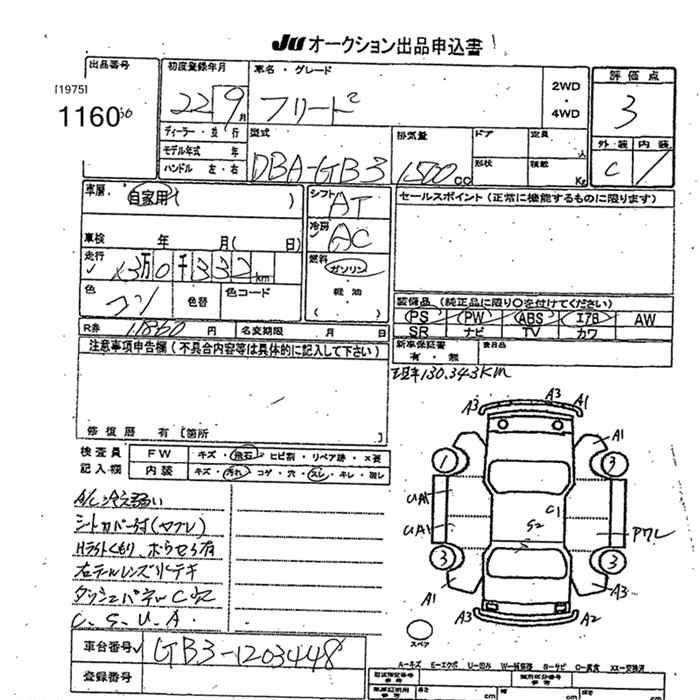 JU オークション出品申込書
出品番号 初度登録年月 車名・グレード 2WD・4WD 評価点
[1975]
1160
22 9月 フリード 3
ディーラー・並行 型式 排気量 ドア 定員 人 外装 内装
モデル年式 年
ハンドル 左・右 DBA-GB3 1500cc 形状 積載 Kg C
車歴 自家用 ( ) シフト AT セールスポイント(正常に機能するものに限ります)
車検 年 月( 日) 冷房 AC
走行 13万0千332km 燃料 ガソリン
色 色替 色コード 軽油 ( )
装備品(純正品に限り○を付けてください)
PS PW ABS エアB AW
R券 11860円 名変期限 月 日 SR ナビ TV カワ
注意事項申告欄(不具合内容等は具体的に記入して下さい) 新車保証書 有・無
現車130.343Km
修復歴 有[箇所
検査員 FW キズ・飛石・ヒビ割・リペア跡・X要
記入欄 内装 キズ・汚れ・コゲ・穴・スレ・キレ・割レ
A/C冷え弱い
シートカバー付(ヤブレ)
Hライトくもり、
右テールレンズ
C.S.U.A
車台番号 GB3-1203448
登録番号
A3 A3 A1
A1
1 3
UA1
C1
UA1 S2
3 3
A1 A3
A3 A2
スペア
A-キズ E-エクボ U-凹み W-補修跡 S-サビ C-腐食 XX-交換済